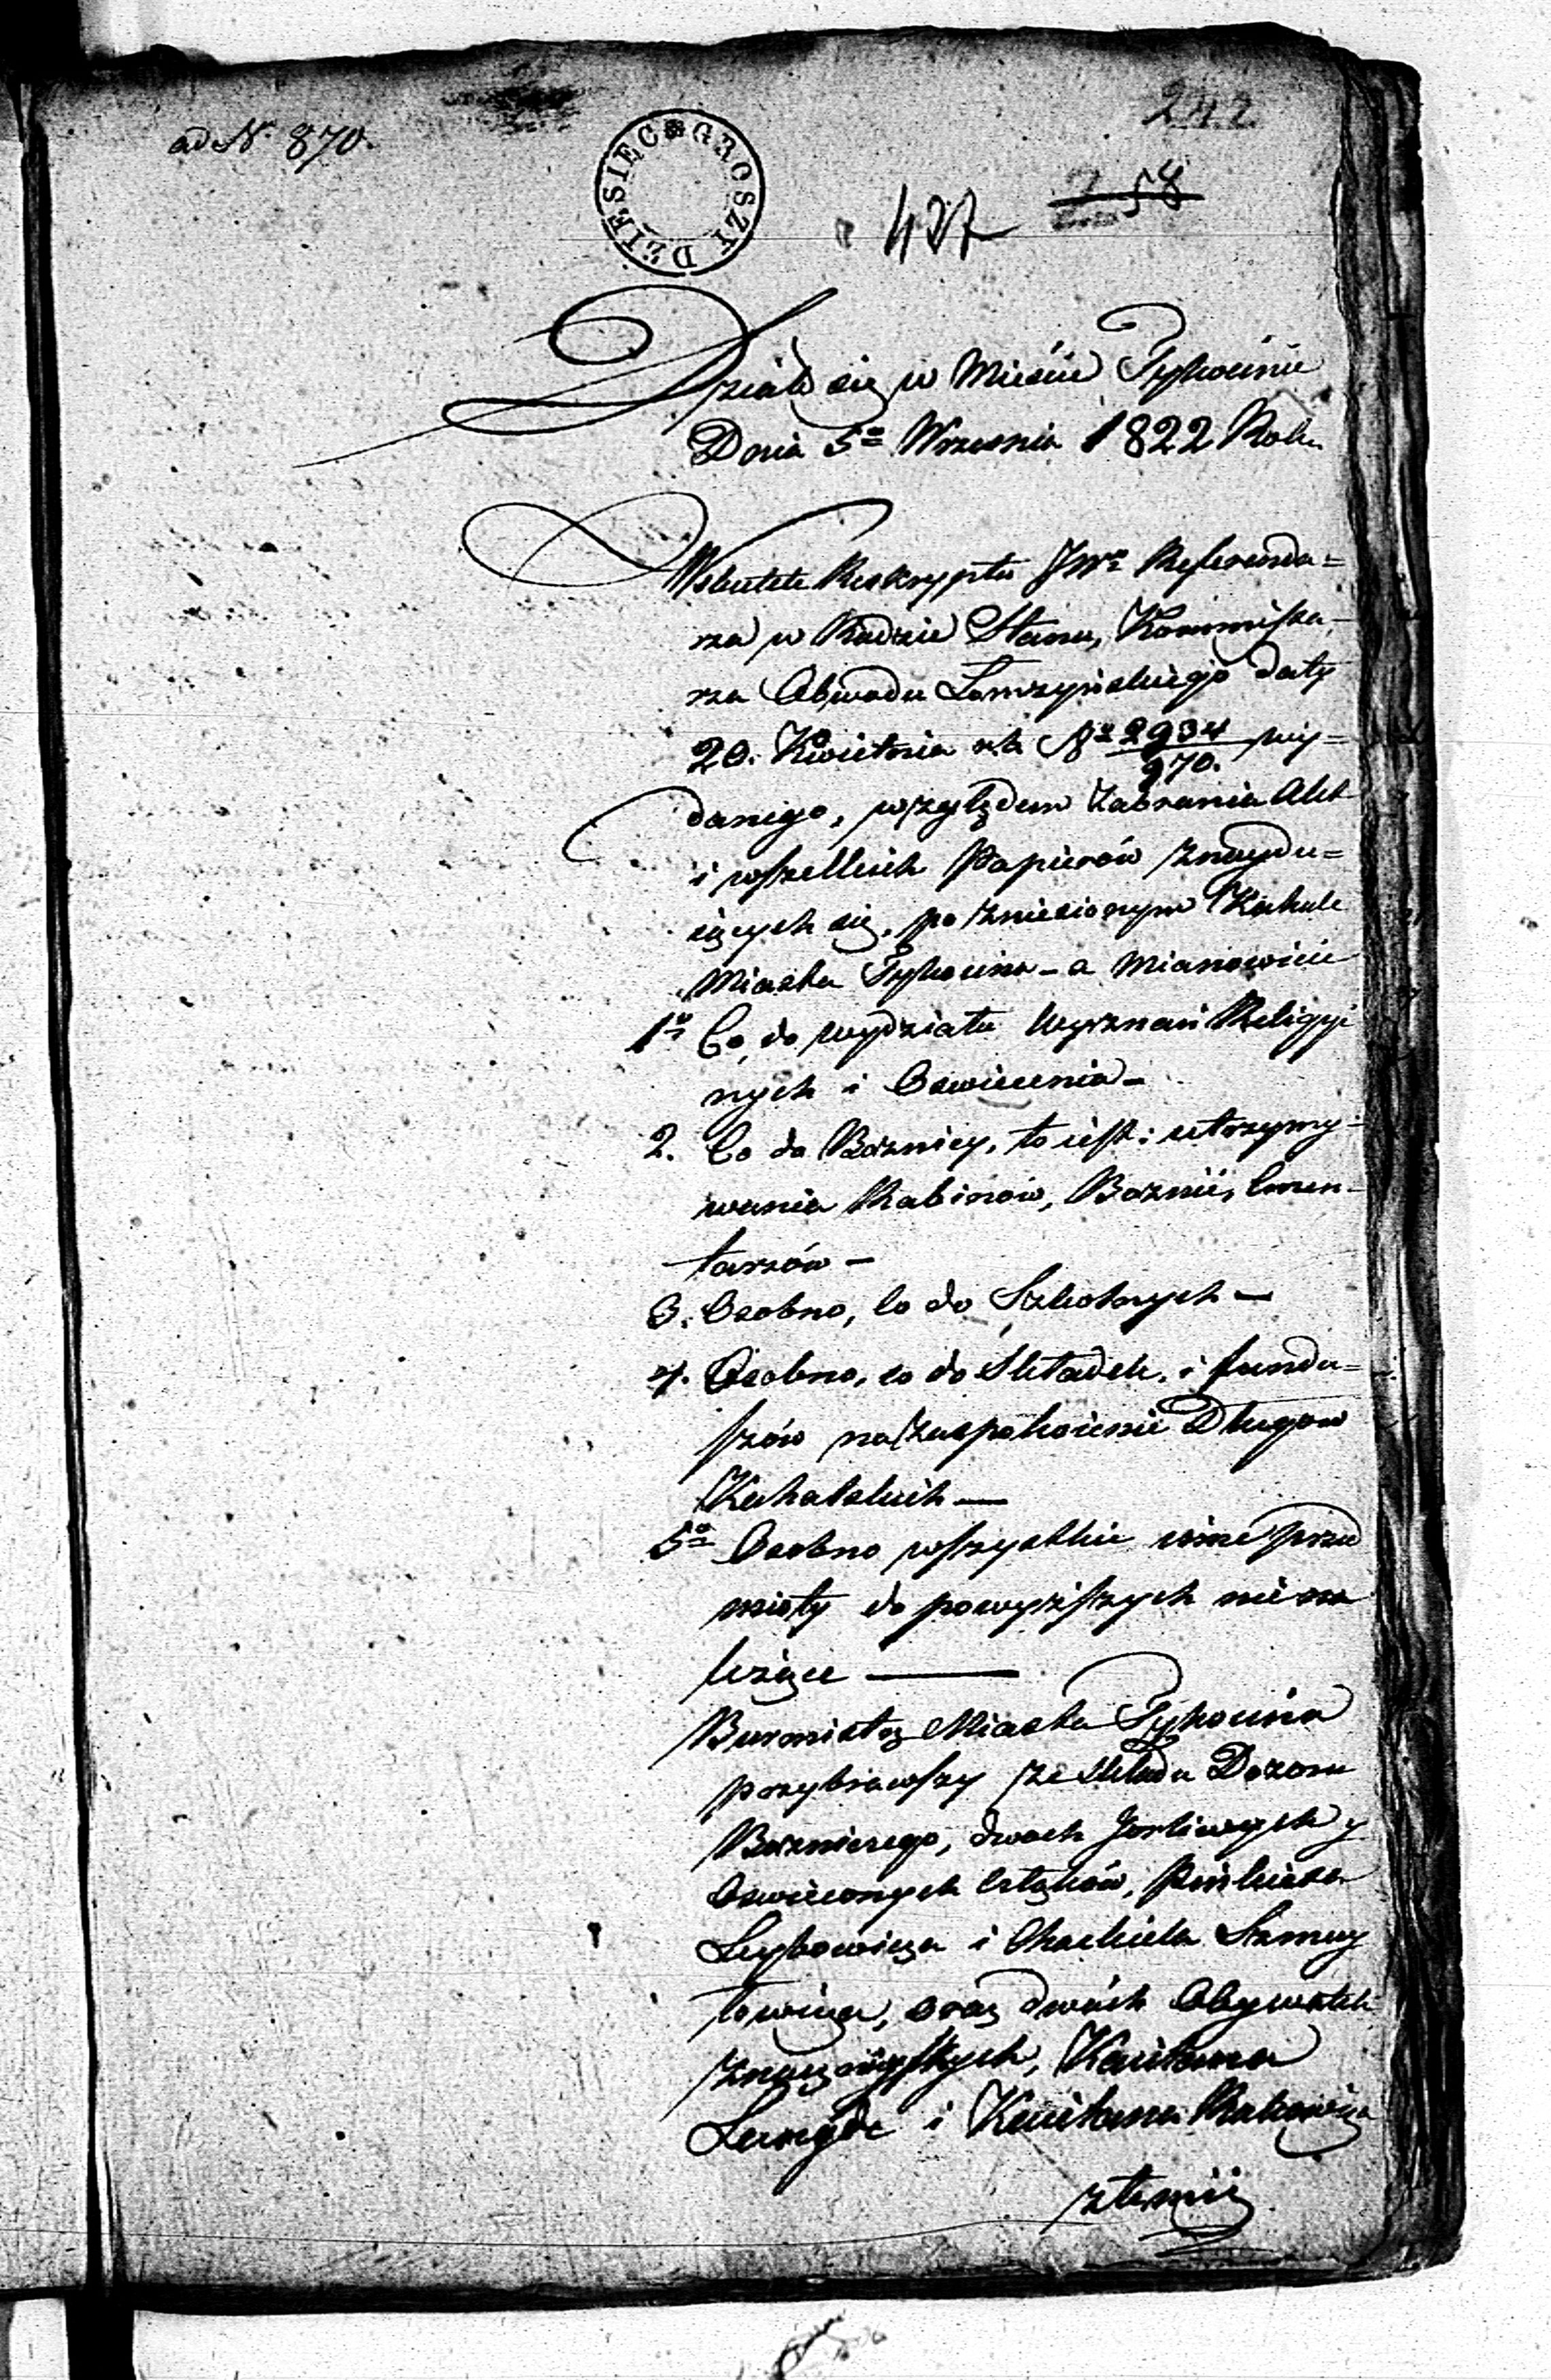 ad Nr 870.
DZIESIĘC GROSZY
242
58
437
Dział się w Mieście Tykocinie
Dnia 5go Września 1822 Roku
Wskutek Reskryptu JWo Referenda=
rza w Radzie Stanu, Kommissa-
rza Obwodu Łomżyńskiego daty
20. Kwietnia rb No 2934/970. wy=
danego, względem zabrania Akt
i wszelkich Papierów znaydu=
iących się, po zniesionym Kahale
Miasta Tykocina - a mianowicie
1o Co do wydziału Wyznań Religyi
nych i Oswiecenia -
2. Co do Boznicy, to iest: utrzymy-
wania Rabinów, Boznic, Cmen-
tarzów -
3. Osobno, co do Szkolnych -
4. Osobno, co do Składek, i fundu=
szów na zaspokoienie Długow
Kahalskich -
5o Osobno wszystkie inne przed
mioty do powyższych nie na
leżące -
Burmistrz Miasta Tykocina
przybrawszy ze składu Dozoru
Bozniczego, dwoch Gorliwych y
Oswieconych członków, Pinkiesa
Leybowicza i Chackiela Szmuy
łowicza, oraz dwóch Obywateli
znacznieyszych, Kaietana
i Kaietana Makowicza